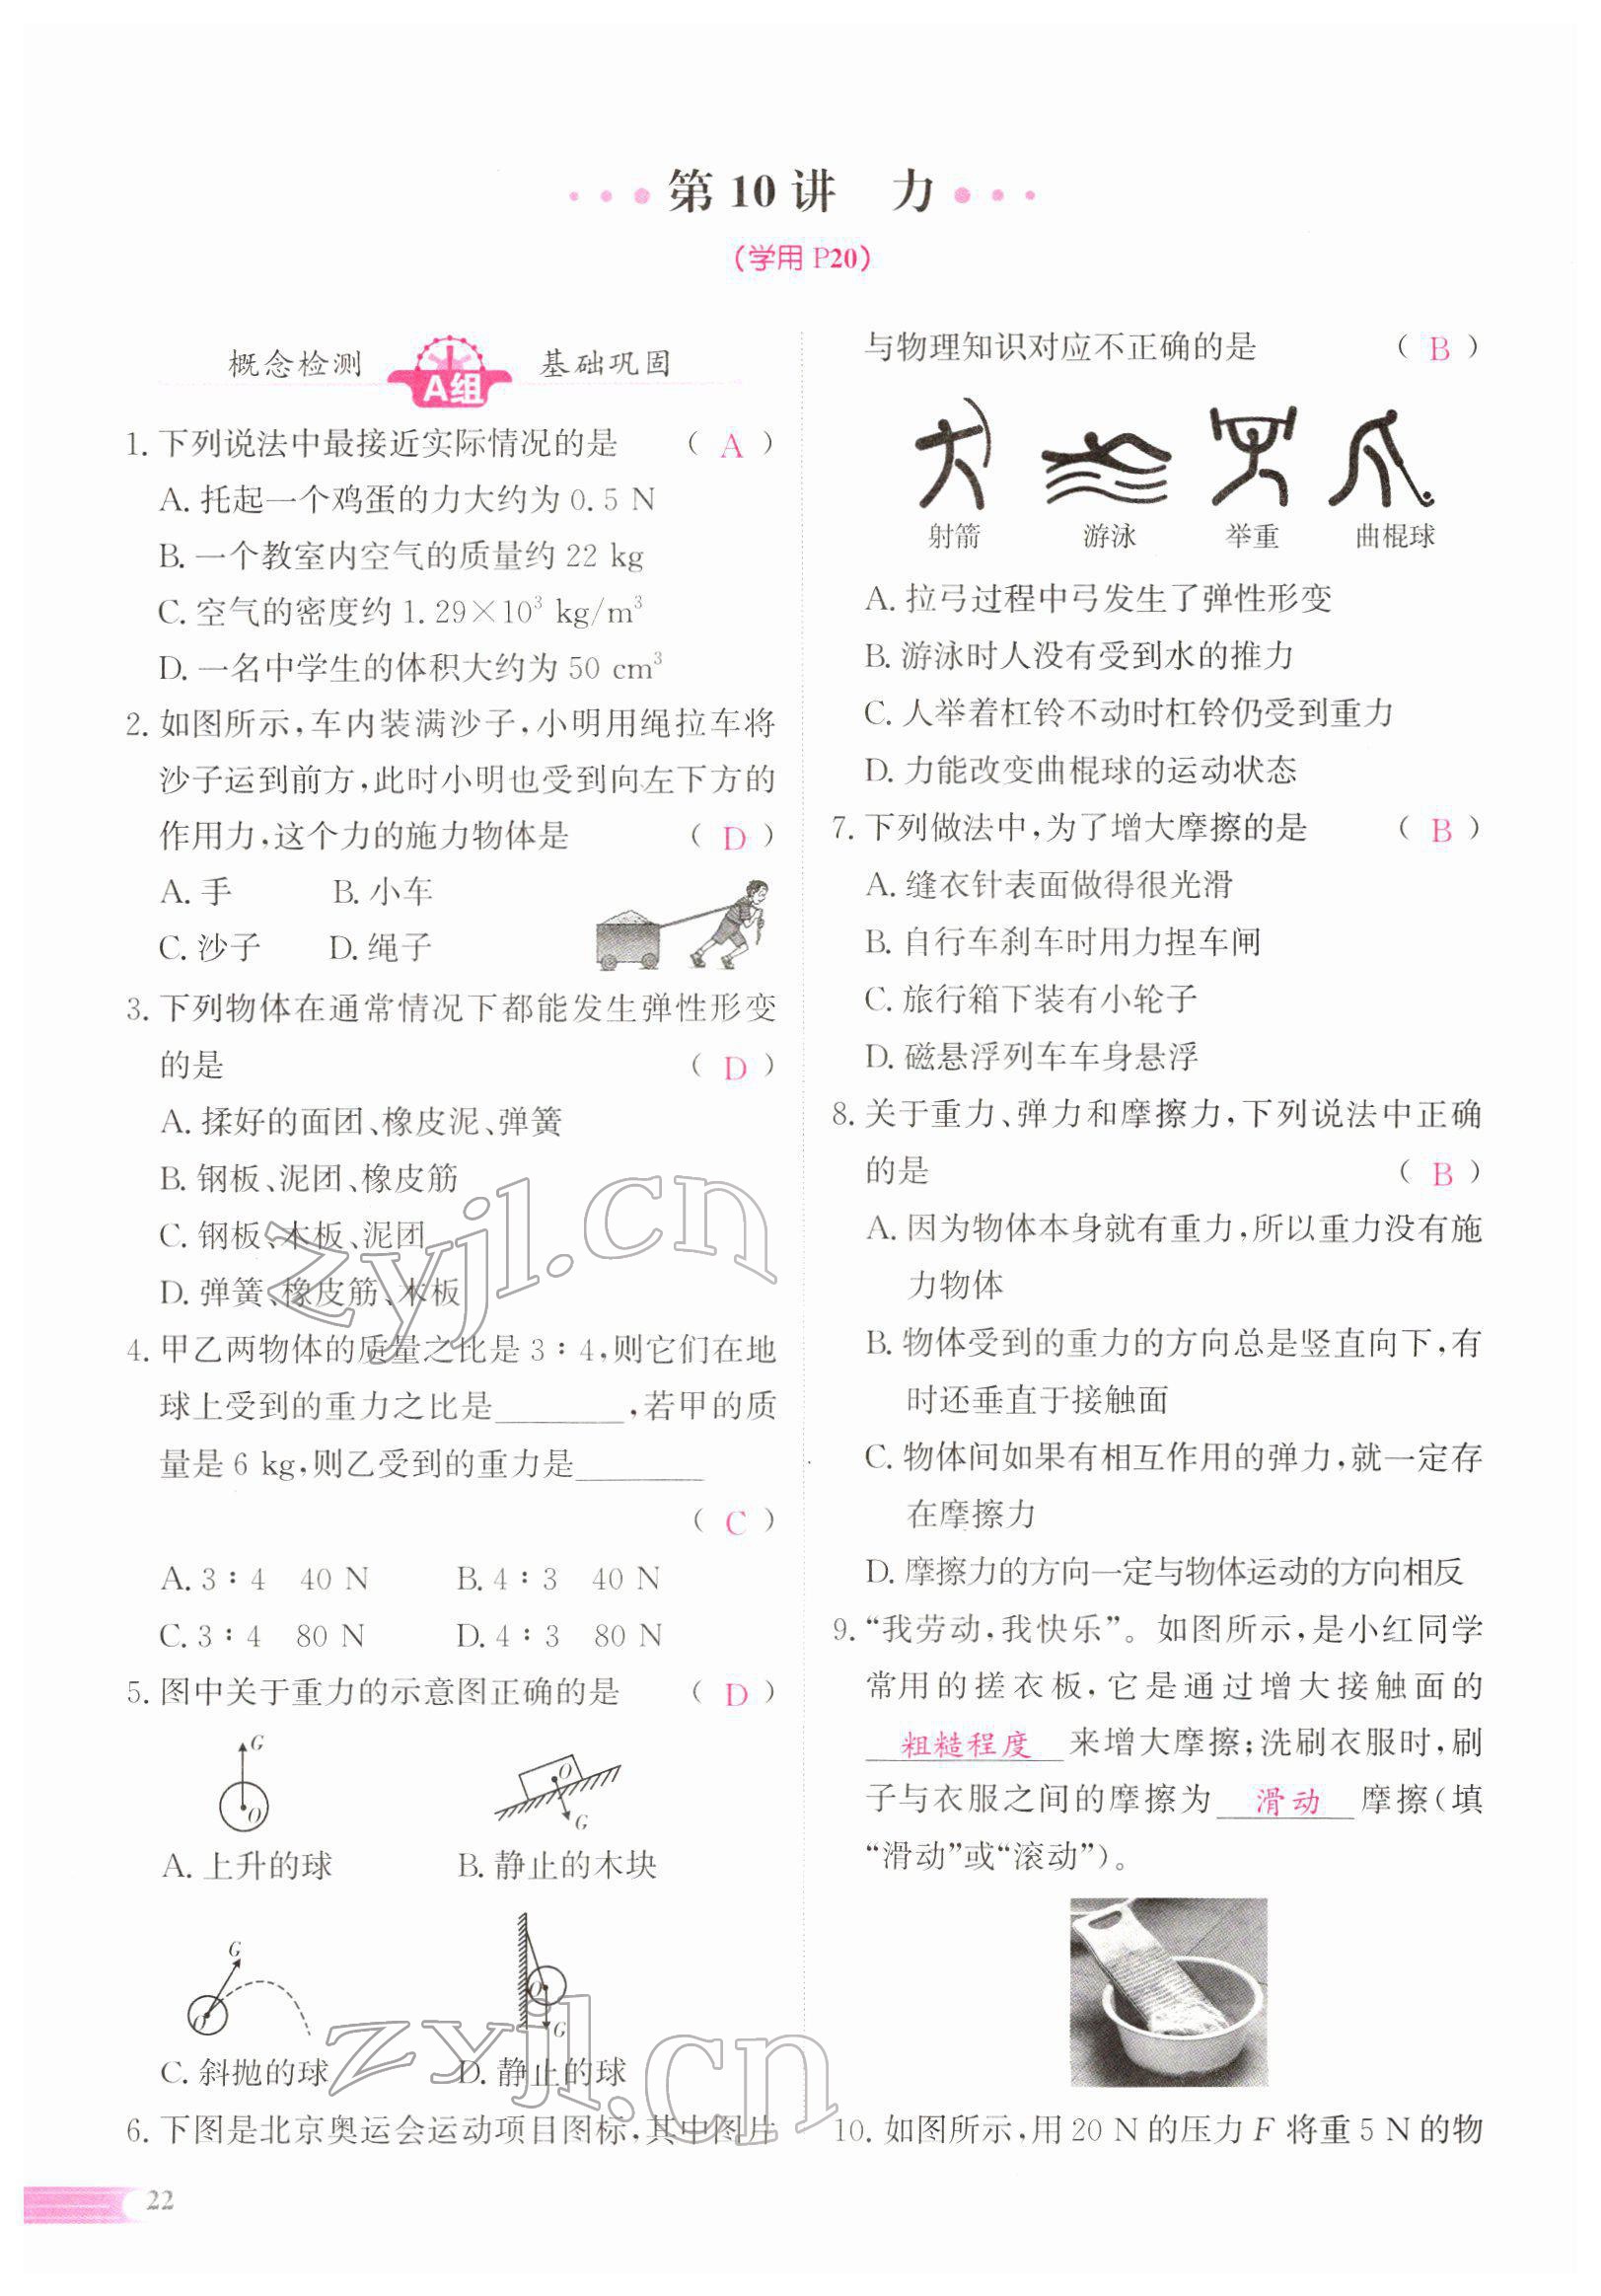 第 10 讲　力
（学用 P20）
概念检测　A组　基础巩固
1. 下列说法中最接近实际情况的是　（ A ）
A. 托起一个鸡蛋的力大约为 0.5 N
B. 一个教室内空气的质量约 22 kg
C. 空气的密度约 1.29×10³ kg/m³
D. 一名中学生的体积大约为 50 cm³
2. 如图所示，车内装满沙子，小明用绳拉车将
沙子运到前方，此时小明也受到向左下方的
作用力，这个力的施力物体是　（ D ）
A. 手　B. 小车
C. 沙子　D. 绳子
3. 下列物体在通常情况下都能发生弹性形变
的是　（ D ）
A. 揉好的面团、橡皮泥、弹簧
B. 钢板、泥团、橡皮筋
C. 钢板、木板、泥团
D. 弹簧、橡皮筋、木板
4. 甲乙两物体的质量之比是 3∶4，则它们在地
球上受到的重力之比是________，若甲的质
量是 6 kg，则乙受到的重力是________
（ C ）
A. 3∶4　40 N　B. 4∶3　40 N
C. 3∶4　80 N　D. 4∶3　80 N
5. 图中关于重力的示意图正确的是　（ D ）
G
O
O
G
A. 上升的球　B. 静止的木块
G
O
O
G
C. 斜抛的球　D. 静止的球
6. 下图是北京奥运会运动项目图标，其中图片
22
与物理知识对应不正确的是　（ B ）
射箭　游泳　举重　曲棍球
A. 拉弓过程中弓发生了弹性形变
B. 游泳时人没有受到水的推力
C. 人举着杠铃不动时杠铃仍受到重力
D. 力能改变曲棍球的运动状态
7. 下列做法中，为了增大摩擦的是　（ B ）
A. 缝衣针表面做得很光滑
B. 自行车刹车时用力捏车闸
C. 旅行箱下装有小轮子
D. 磁悬浮列车车身悬浮
8. 关于重力、弹力和摩擦力，下列说法中正确
的是　（ B ）
A. 因为物体本身就有重力，所以重力没有施
力物体
B. 物体受到的重力的方向总是竖直向下，有
时还垂直于接触面
C. 物体间如果有相互作用的弹力，就一定存
在摩擦力
D. 摩擦力的方向一定与物体运动的方向相反
9. “我劳动，我快乐”。如图所示，是小红同学
常用的搓衣板，它是通过增大接触面的
粗糙程度 来增大摩擦；洗刷衣服时，刷
子与衣服之间的摩擦为 滑动 摩擦（填
“滑动”或“滚动”）。
10. 如图所示，用 20 N 的压力 F 将重 5 N 的物
zyjl.cn
zyjl.cn